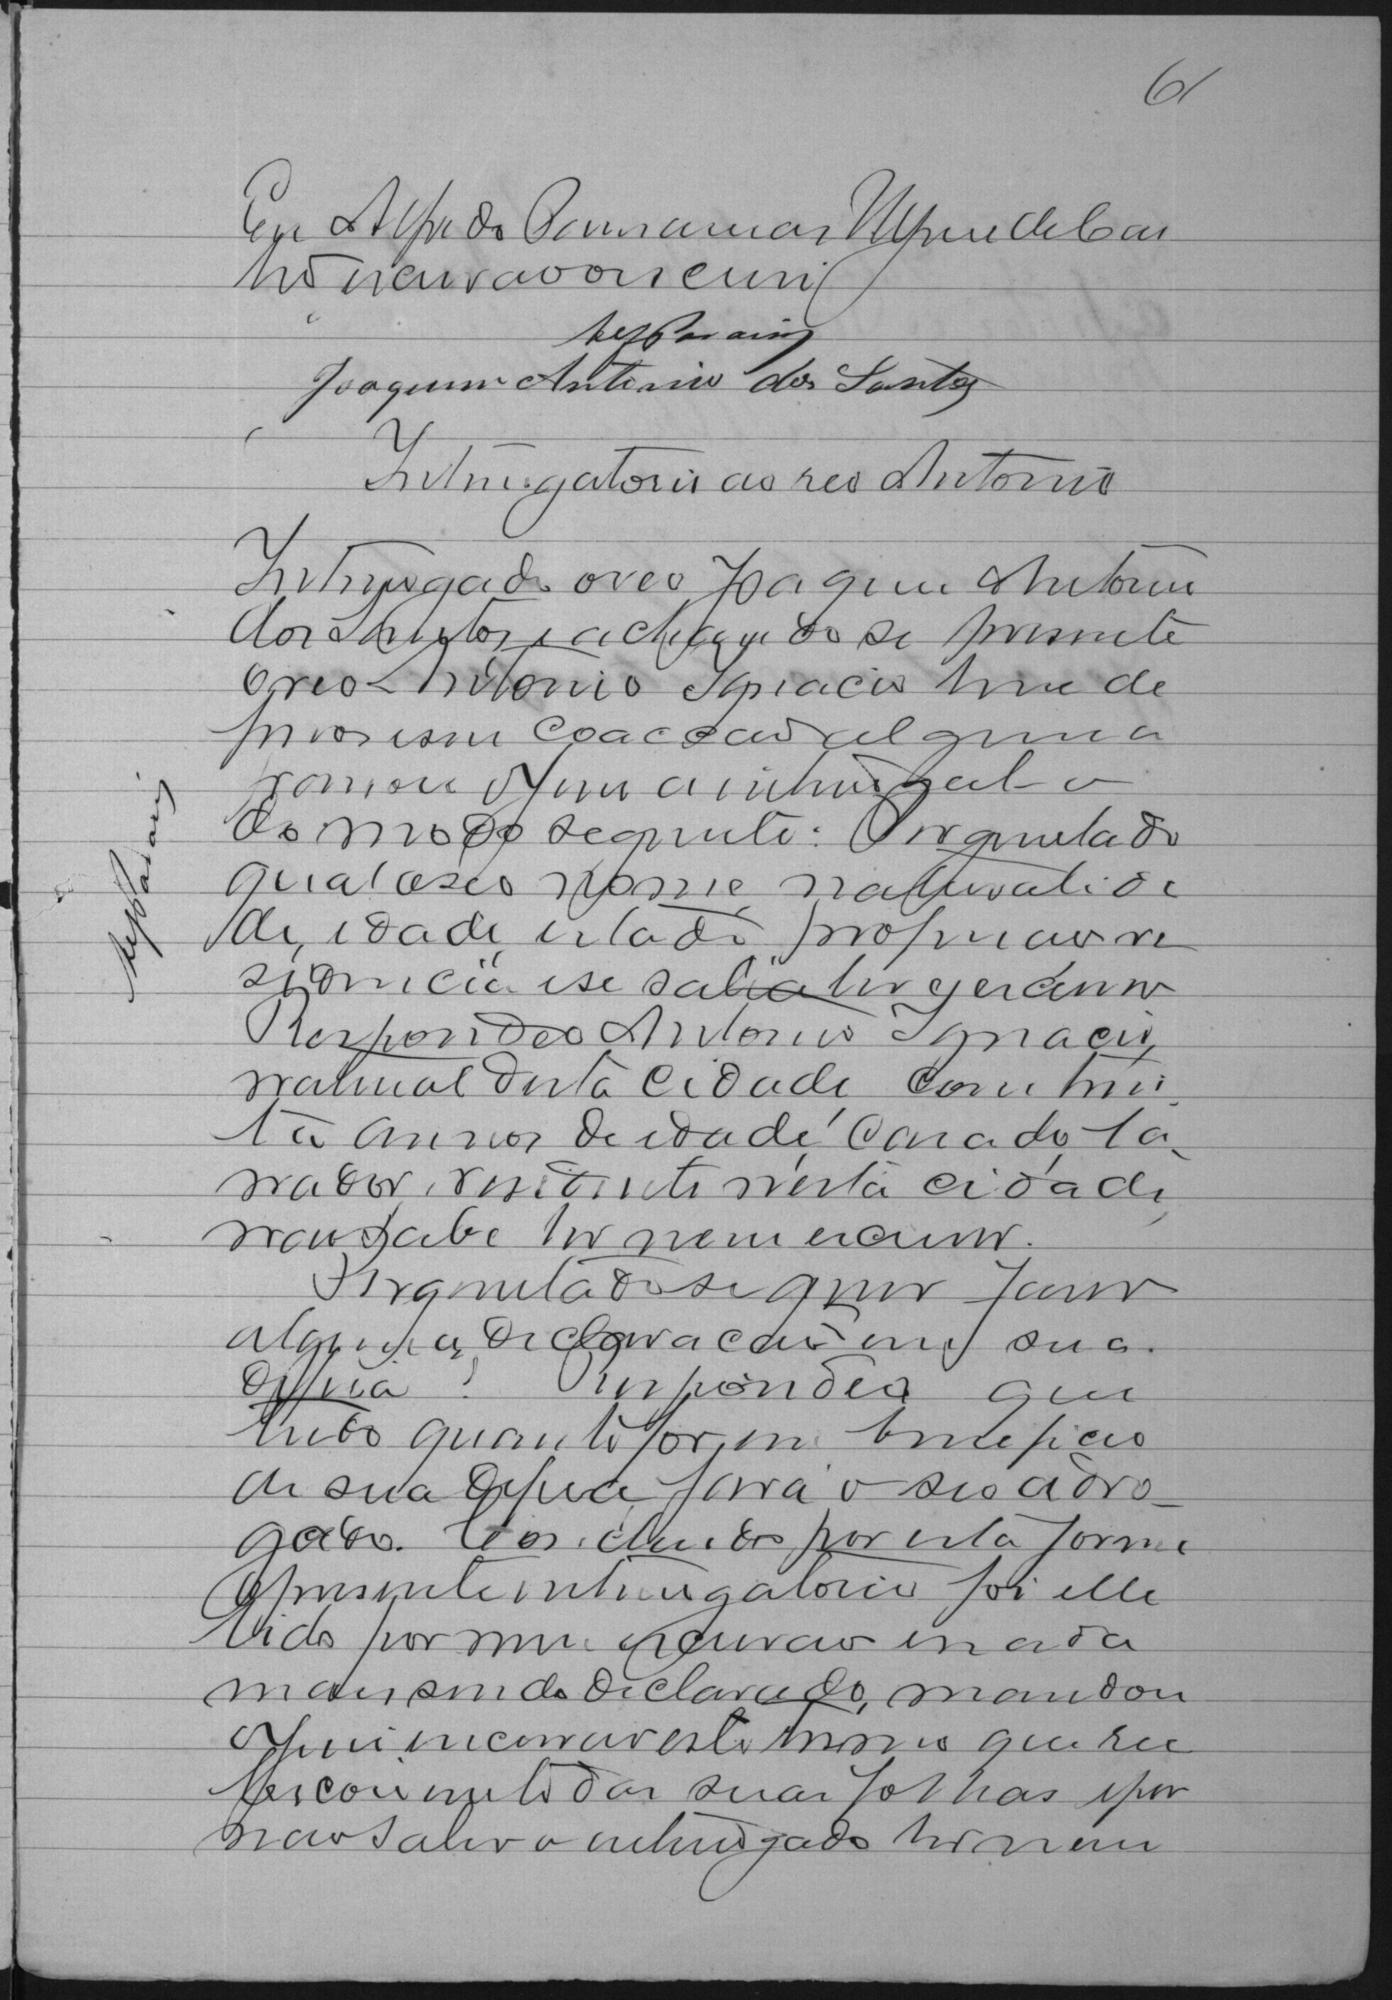 61
Eu Alfredo
escrivão o escrevi
Joaquim Antonio dos Santos
Interrogatorio ao reo Antonio
Interrogado o reo Joaquim Antonio
dos Santos e achando se presente
o reo Antonio Ignacio livre de
ferros e sem coacção alguma
passou o Juiz a interrogal-o
do modo seguinte: Perguntado
qual o seo nome, naturalida
de, idade, estado, profissão re
sidencia e se sabia ler e escrever
Respondeo Antonio Ignacio,
natural desta cidade com trin
ta annos de idade, casado, la
vrador, residente nesta cidade,
não sabe ler nem escrever.
Perguntado se quer fazer
alguma declaração em sua
defesa? Respondeo que
tudo quanto for em beneficio
de sua defesa fará o seo advo-
gado. Concluido por esta forma
o presente interrogatorio foi elle
lido por mim escrivão e nada
mais sendo declarado, mandou
o Juiz encerrar este termo que ru
das suas folhas e por
não saber o interrogado ler nem